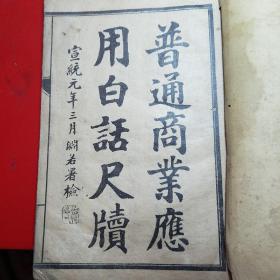 普通商業應
用白話尺牘
宣統元年三月 㵎若署檢